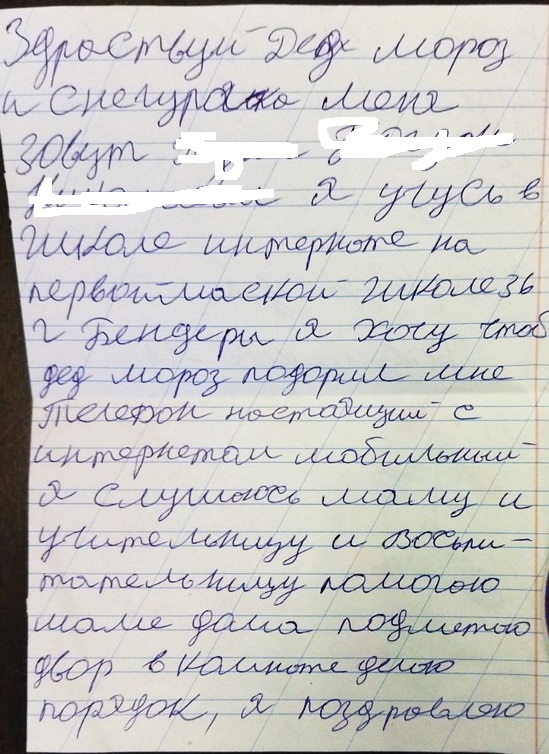 Здраствуй Дед мороз
и снегурачка меня
зовут
я учусь в
школе интернате на
первоймаской школе 3ь
г Бендеры я хочу чтоб
дед мороз подорил мне
телефон настаящий с
интернетом мобильный
я слушаюсь маму и
учительницу и воспи-
тательницу помогою
маме дома подметою
двор в комноте делою
порядок, я поздровлею